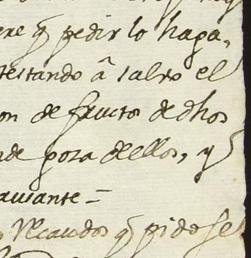 ere q̃ pedir lo haga,
testando â salvo el
on de fructos de dhos
de poza dellos, y
auiante =
Recaudos q̃ pidose